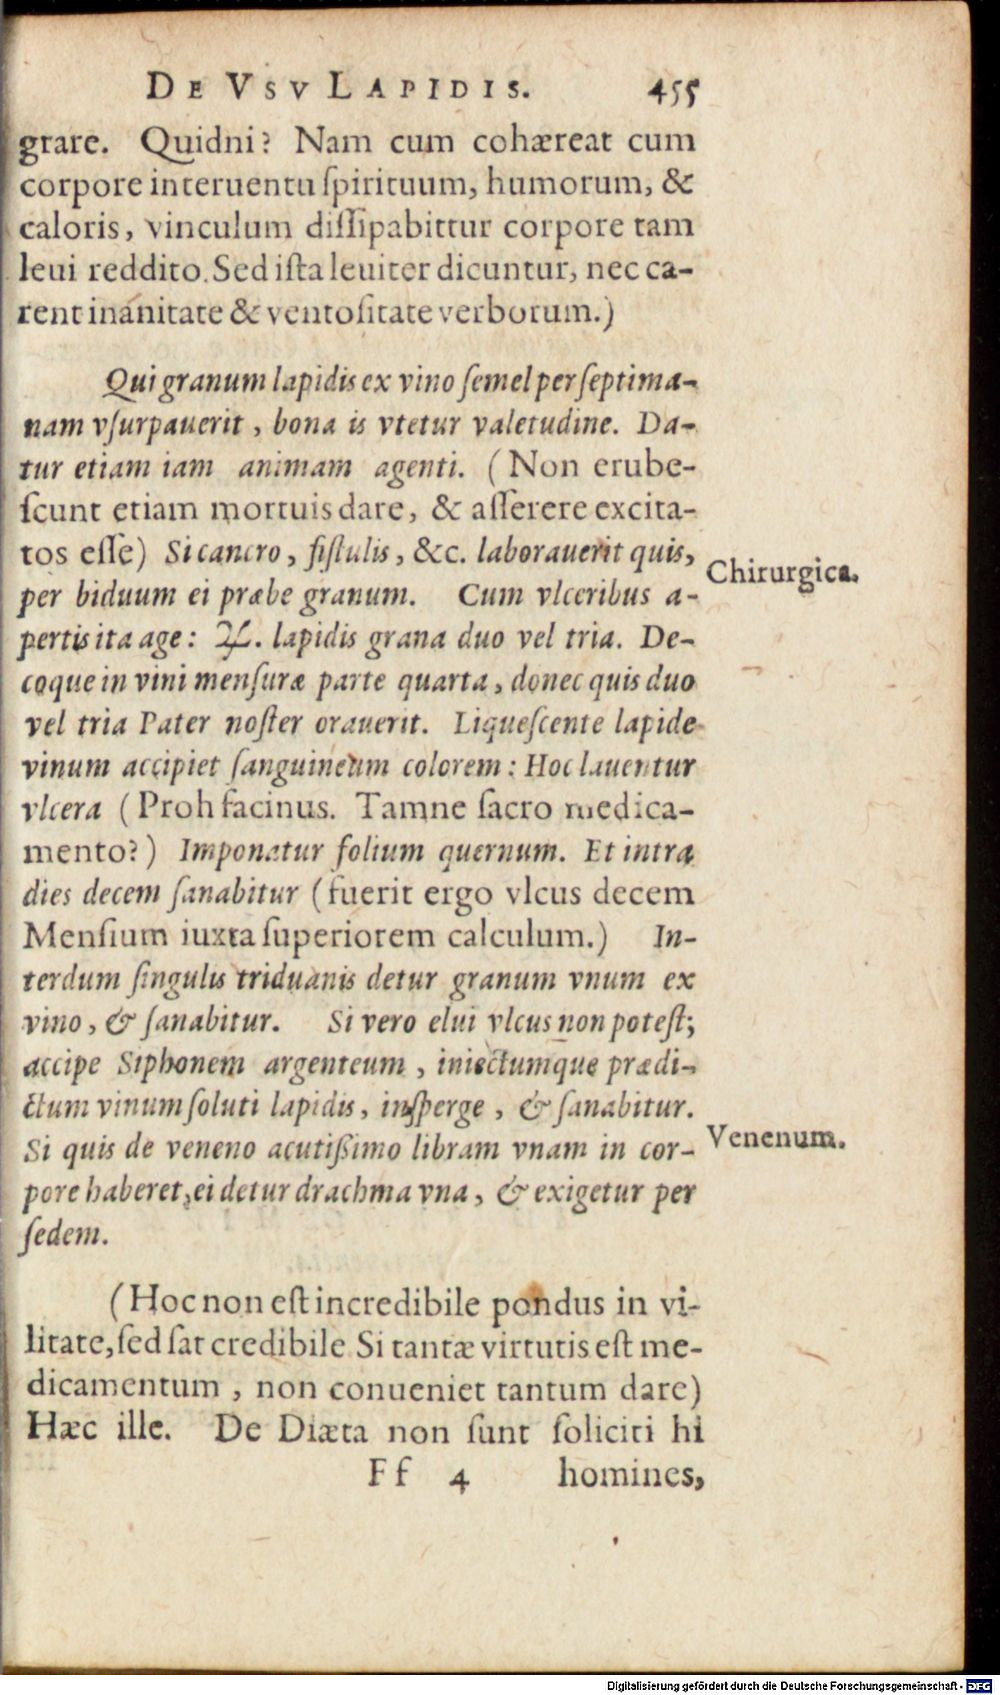 DE VSV LAPIDIS. 455
grare. Quidni? Nam cum cohæreat cum
corpore interuentu ſpirituum, humorum, &
caloris, vinculum diſſipabittur corpore tam
leui reddito. Sed iſta leuiter dicuntur, nec ca-
rent inanitate & ventoſitate verborum.)
Qui granum lapidis ex vino ſemel per ſeptima-
nam vſurpauerit, bona is vtetur valetudine. Da-
tur etiam iam animam agenti. (Non erube-
ſcunt etiam mortuis dare, & aſſerere excita-
tos eſſe) Si cancro, fiſtulis, &c. laborauerit quis,
Chirurgica.
per biduum ei præbe granum. Cum vlceribus a-
pertis ita age: ℞. lapidis grana duo vel tria. De-
coque in vini menſuræ parte quarta, donec quis duo
vel tria Pater noſter orauerit. Liqueſcente lapide
vinum accipiet ſanguineum colorem: Hoc lauentur
vlcera (Proh facinus. Tamne ſacro medica-
mento?) Imponatur folium quernum. Et intra
dies decem ſanabitur (fuerit ergo vlcus decem
Menſium iuxta ſuperiorem calculum.) In-
terdum ſingulis triduanis detur granum vnum ex
vino, & ſanabitur. Si vero elui vlcus non poteſt;
accipe Siphonem argenteum, iniectumque prædi-
ctum vinum ſoluti lapidis, inſperge, & ſanabitur.
Venenum.
Si quis de veneno acutißimo libram vnam in cor-
pore haberet, ei detur drachma vna, & exigetur per
ſedem.
(Hoc non eſt incredibile pondus in vi-
litate, ſed ſat credibile Si tantæ virtutis eſt me-
dicamentum, non conueniet tantum dare)
Hæc ille. De Diæta non ſunt ſoliciti hi
Ff 4 homines,
Digitalisierung gefördert durch die Deutsche Forschungsgemeinschaft - DFG